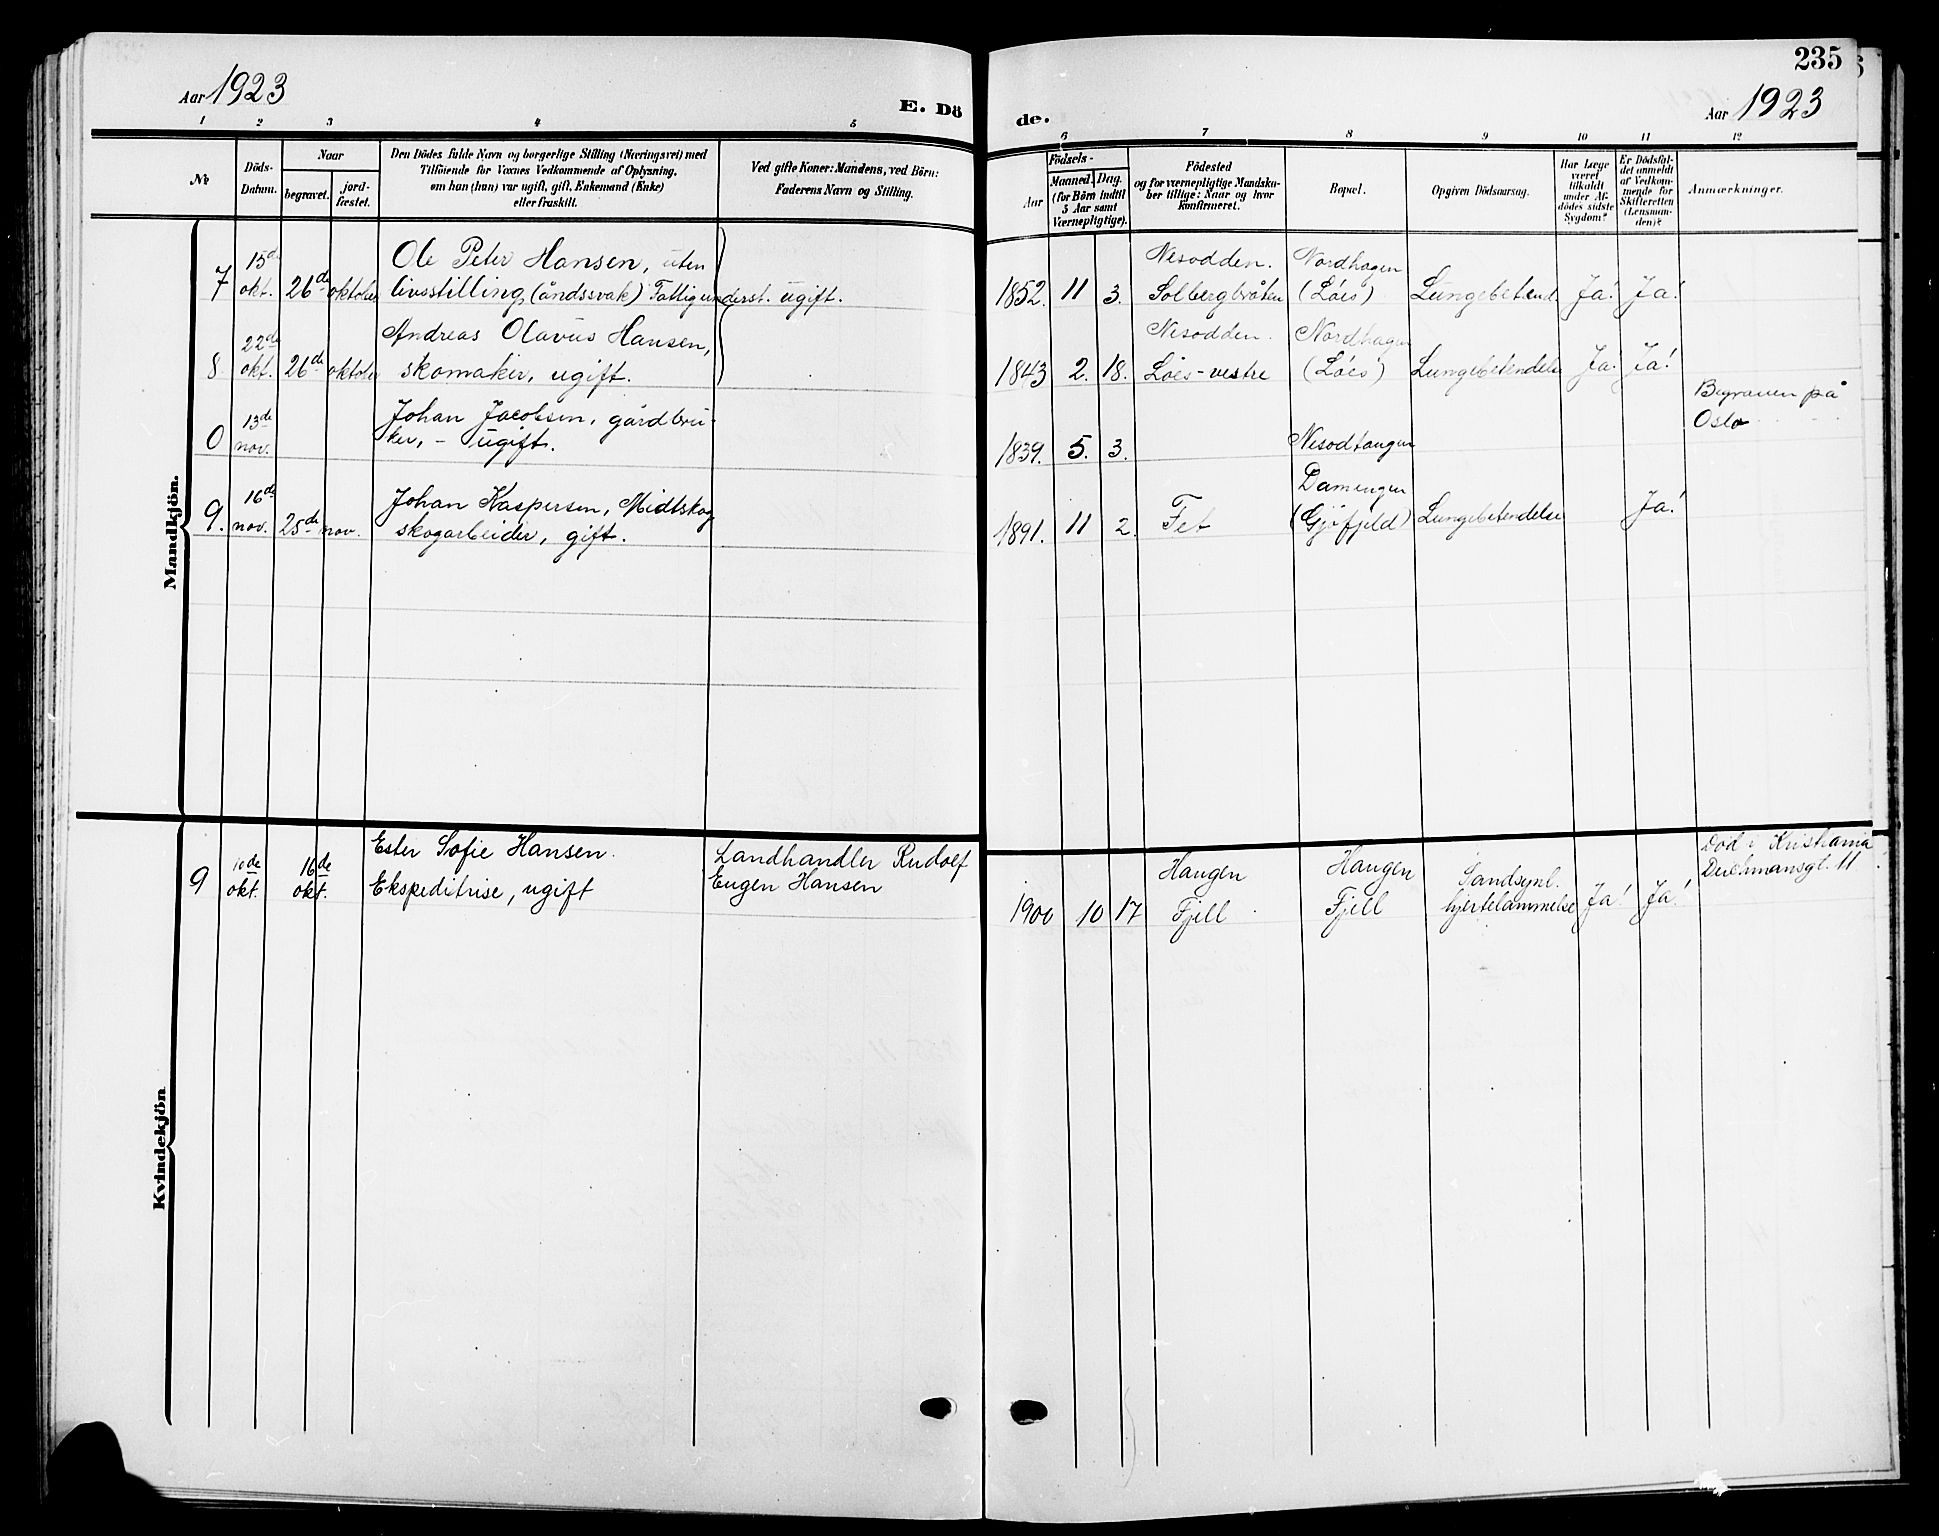 235
Aar 1923
E. Dö
de.
Aar 1923
1 2 3 4 5
6 7 8 9 10 11 12
No
Döds-
Datum.
Naar
begravet.
jord-
fæstet.
Den Dödes fulde Navn og borgerlige Stilling (Næringsvei) med
Tilföiende for Voxnes Vedkommende af Oplysning,
om han (hun) var ugift, gift, Enkemand (Enke)
eller fraskilt.
Ved gifte Koner: Mandens, ved Börn:
Faderens Navn og Stilling.
Födsels-
Aar
Maaned. Dag.
(for Börn indtil
5 Aar samt
Værnepligtige).
Födested
og for værnepligtige Mandska-
ber tillige: Naar og hvor
konfirmeret.
Bopæl.
Opgiven Dödsaarsag.
Har Læge
været
tilkaldt
under Af-
dödes sidste
Sygdom?
Er Dödsfal-
det anmeldt
af Vedkom-
mende for
Skifteretten
(Lensman-
den)?
Anmærkninger.
Mandkjön.
7
15de
okt.
26de
oktober
Ole Peter Hansen, uten
livsstilling (åndssvak) Fattigunderst. ugift.
1852. 11 3.
Nesodden.
Solbergbråten
Nordhagen
(Löes)
Lungebetend.
Ja! Ja!
8
22de
okt.
26de
oktober
Andreas Olavus Hansen,
skomaker, ugift.
1843 2. 18.
Nesodden.
Löes-vestre
Nordhagen
(Löes)
Lungebetendelse
Ja! Ja!
0
13de
nov.
Johan Jacobsen, gårdbru-
ker, - ugift.
1839. 5. 3.
Nesodtangen
Begraven på
Oslo
9.
16de
nov.
25de
nov.
Johan Kaspersen, Midtskog
skogarbeider, gift.
1891. 11 2.
Fet
Damengen
(Gjöfjeld)
Lungebetendelse
Ja!
Kvindekjön
9
10de
okt.
16de
okt.
Ester Sofie Hansen.
Ekspeditrise, ugift
Landhandler Rudolf
Eugen Hansen
1900 10 17
Haugen
Fjell
Haugen
Fjell
Sandsynl.
hjertelammelse
Ja! Ja!
Död i Kristiania
Deichmansgt. 11